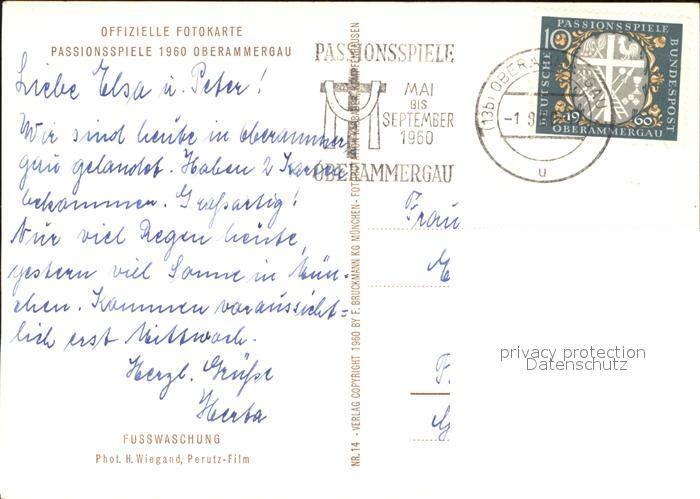 OFFIZIELLE FOTOKARTE
PASSIONSSPIELE 1960 OBERAMMERGAU
Liebe Elsa u. Peter!
Wir sind heute in Oberammer
gau gelandet. Haben 2 Karten
bekommen. Großartig!
Nur viel Regen heute,
gestern viel Sonne in Mün-
chen. Kommen voraussicht=
lich erst Mittwoch.
Herzl. Grüße
Herta
FUSSWASCHUNG
Phot. H. Wiegand, Perutz-Film
NR. 14 - VERLAG COPYRIGHT 1960 BY F. BRUCKMANN KG MÜNCHEN - FOTO
PASSIONSSPIELE
MAI
BIS
SEPTEMBER
1960
OBERAMMERGAU
(13b) OBERAMMERGAU
-1.9.
u
PASSIONSSPIELE
10
DEUTSCHE
BUNDESPOST
19 60
OBERAMMERGAU
Frau
privacy protection
Datenschutz